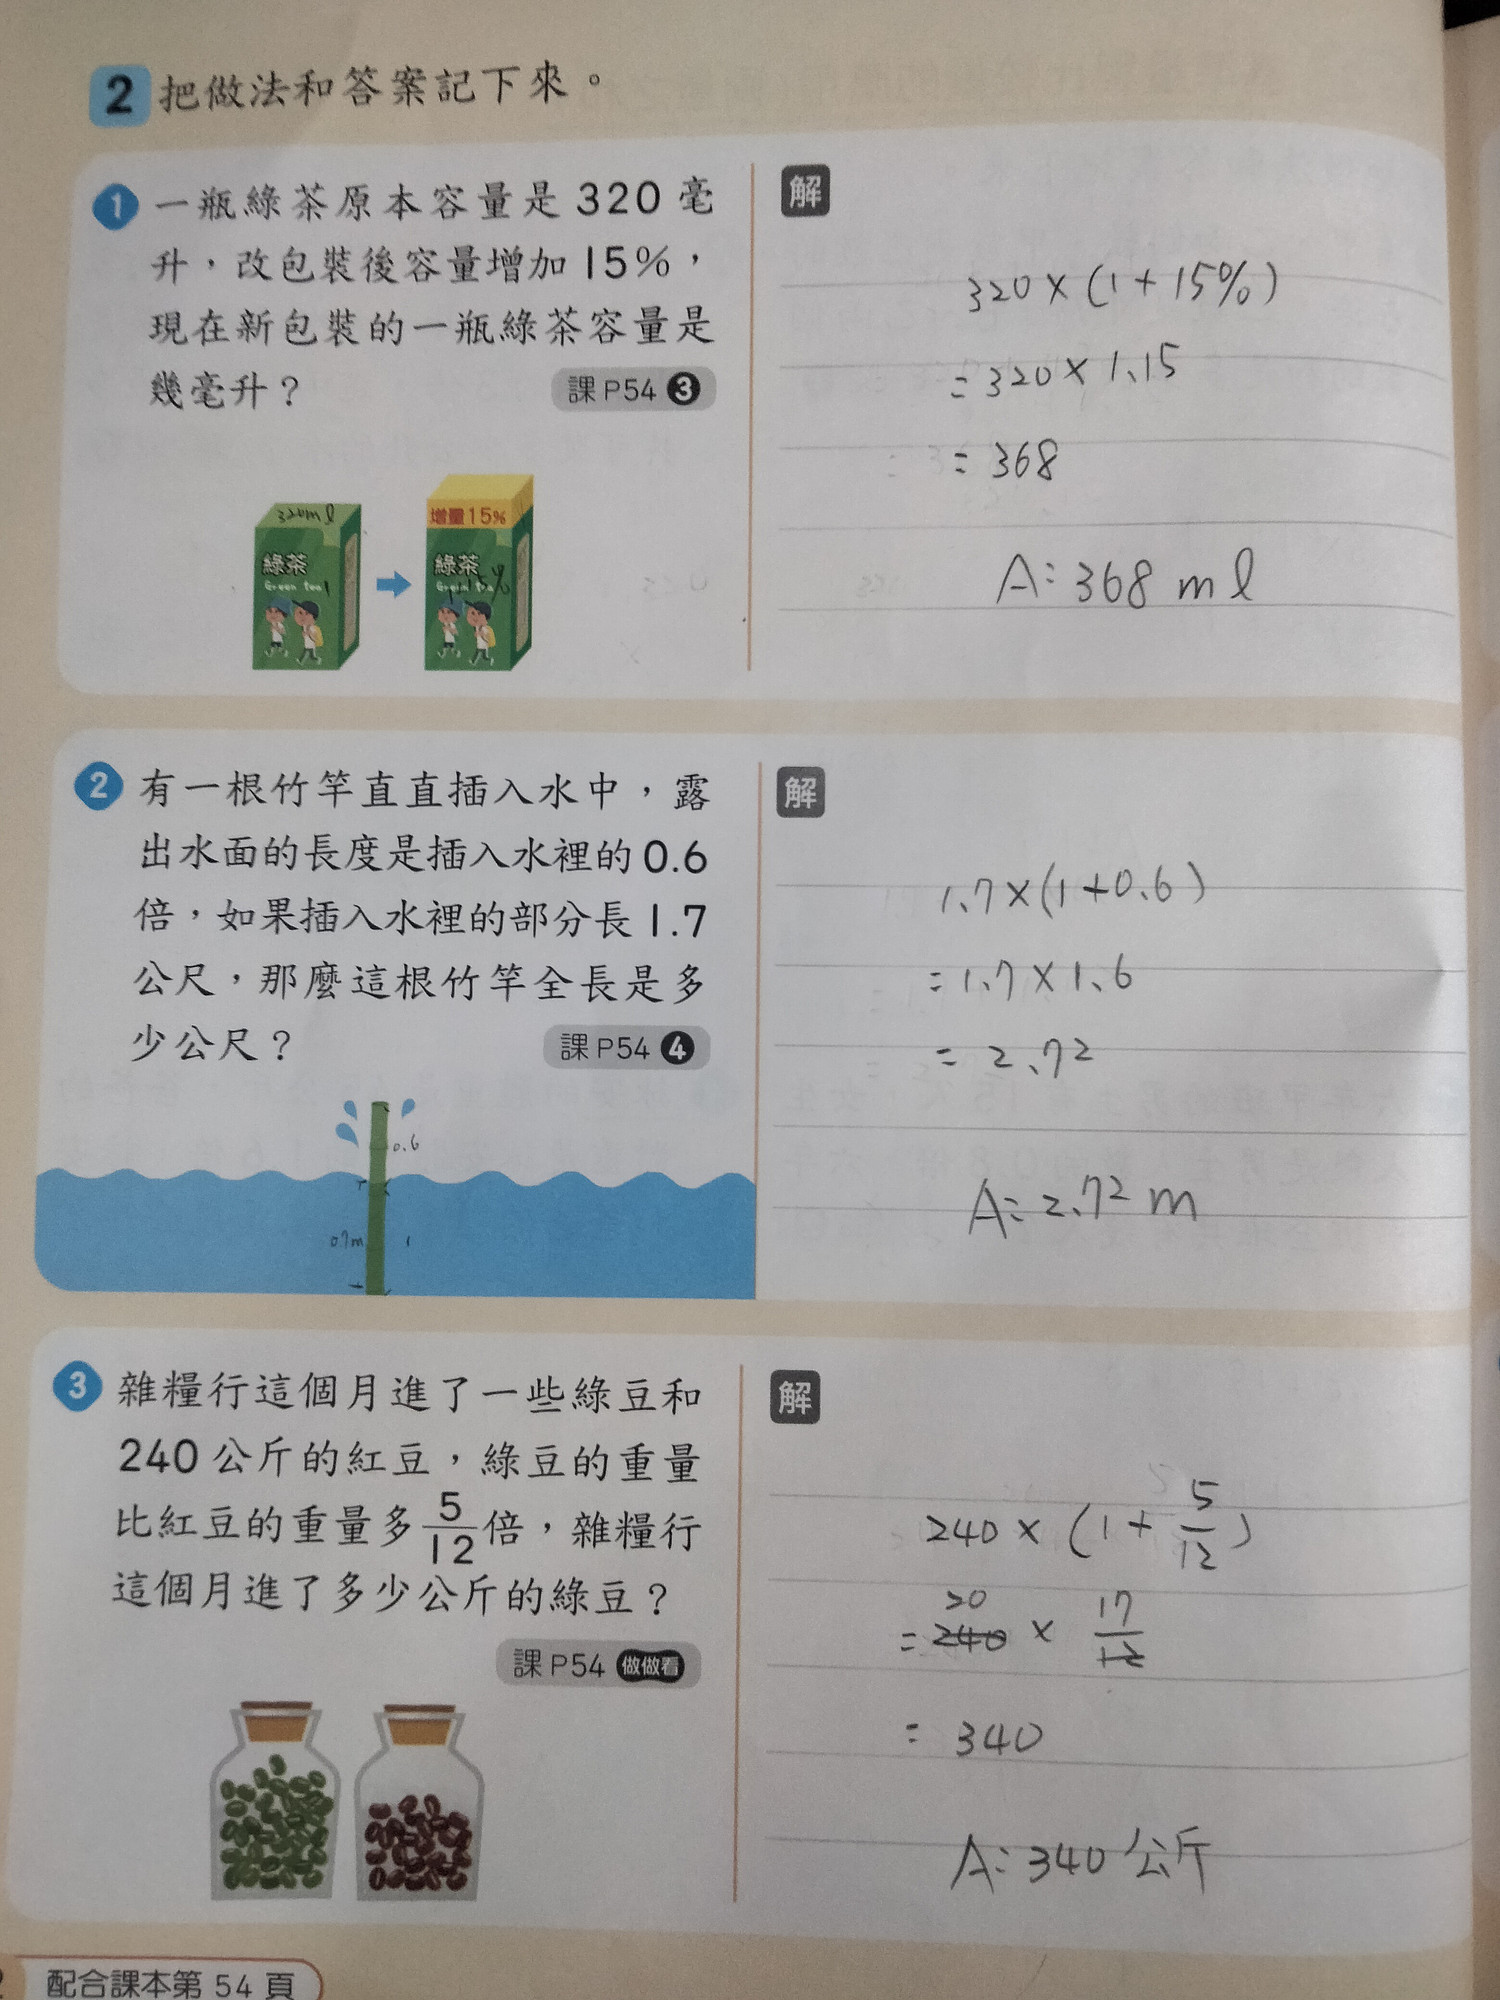 2 把做法和答案記下來。
1 一瓶綠茶原本容量是320毫
升，改包裝後容量增加15%，
現在新包裝的一瓶綠茶容量是
幾毫升？
課P54 3
320ml
綠茶
Green tea
增量15%
綠茶
解
320×(1+15%)
=320×1.15
=368
A:368 ml
2 有一根竹竿直直插入水中，露
出水面的長度是插入水裡的0.6
倍，如果插入水裡的部分長1.7
公尺，那麼這根竹竿全長是多
少公尺？
課P54 4
0.6
1
解
1.7×(1+0.6)
=1.7×1.6
=2.72
A:2.72 m
3 雜糧行這個月進了一些綠豆和
240公斤的紅豆，綠豆的重量
比紅豆的重量多5/12倍，雜糧行
這個月進了多少公斤的綠豆？
課P54 做做看
解
240×(1+5/12)
20
=240×17/12
=340
A:340公斤
配合課本第54頁